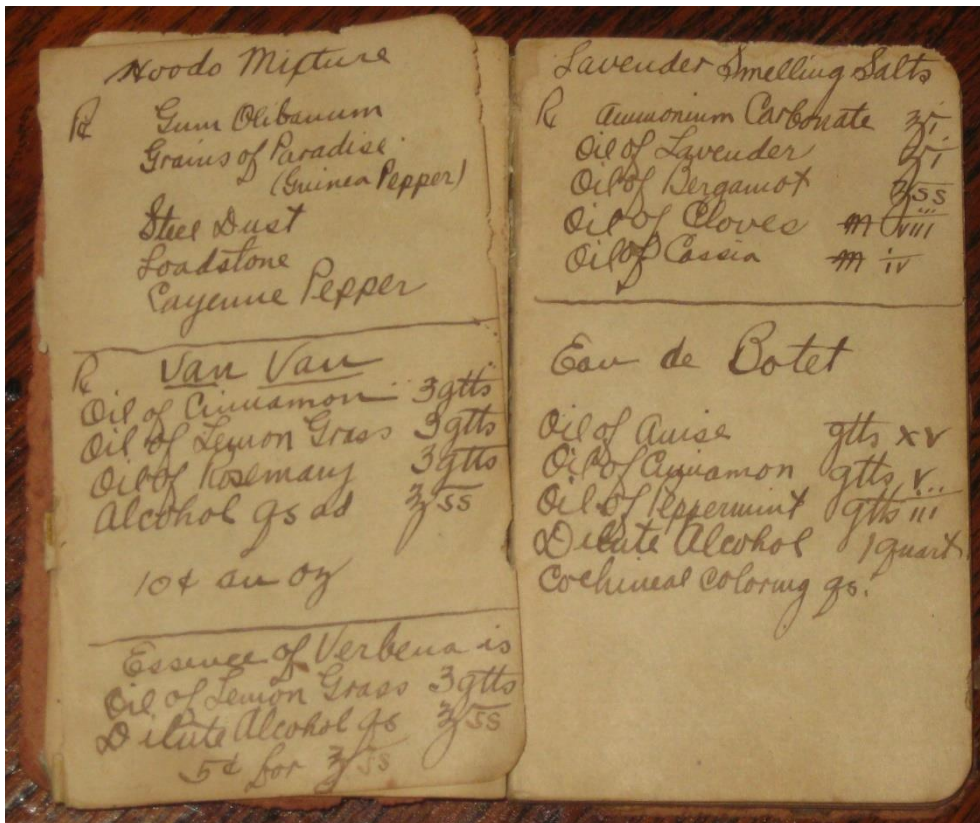 Hoodo Mixture
℞ Gum Olibanum
Grains of Paradise
(Guinea Pepper)
Steel Dust
Loadstone
Cayenne Pepper
℞ Van Van
Oil of Cinnamon 3 gtts
Oil of Lemon Grass 3 gtts
Oil of Rosemary 3 gtts
Alcohol qs ad ℥ss
10¢ an oz
Essence of Verbena is
Oil of Lemon Grass 3 gtts
Dilute Alcohol qs ℥ss
5¢ for ℥ss
Lavender Smelling Salts
℞ Ammonium Carbonate ℥i
Oil of Lavender ʒi
Oil of Bergamot ʒss
Oil of Cloves ♏ viii
Oil of Cassia ♏ iv
Eau de Botet
Oil of Anise gtts xv
Oil of Cinnamon gtts v
Oil of Peppermint gtts iii
Dilute Alcohol 1 quart
Cochineal Coloring qs.